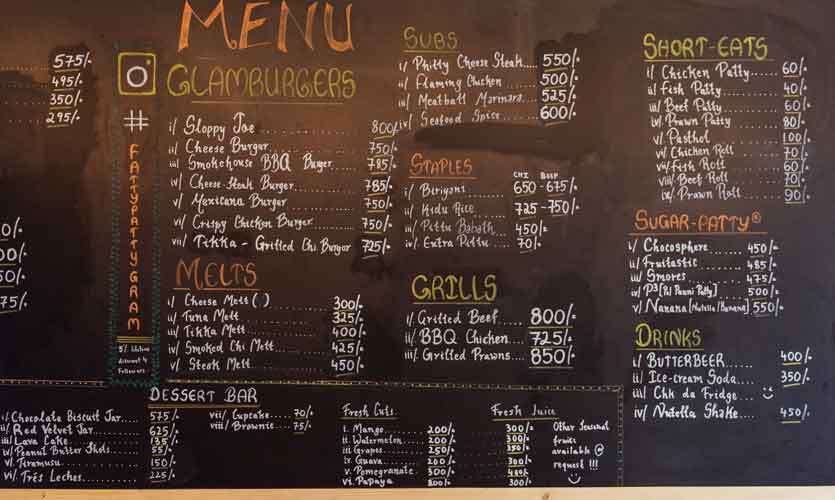 575/-
495/-
350/-
295/-
#
FATTYPATTYGRAM
MENU
GLAMBURGERS
i/ Sloppy Joe 800/-
ii/ Cheese Burger 750/-
iii/ Smokehouse BBQ Burger 785/-
iv/ Cheese-Steak Burger 785/-
v/ Mexicana Burger 750/-
vi/ Crispy Chicken Burger 750/-
vii/ Tikka - Grilled Chi Burger 725/-
MELTS
i/ Cheese Melt ( ) 300/-
ii/ Tuna Melt 325/-
iii/ Tikka Melt 400/-
iv/ Smoked Chi Melt 425/-
v/ Steak Melt 450/-
SUBS
i/ Philly Cheese Steak 550/-
ii/ Flaming Chicken 500/-
iii/ Meatball Marinara 525/-
iv/ Seafood Spice 600/-
STAPLES
CHI BEEF
i/ Biriyani 650 - 675/-
ii/ Kidu Rice 725 - 750/-
iii/ Pittu Babath 450/-
iv/ Extra Pittu 70/-
GRILLS
i/ Grilled Beef 800/-
ii/ BBQ Chicken 725/-
iii/ Grilled Prawns 850/-
SHORT-EATS
i/ Chicken Patty 60/-
ii/ Fish Patty 40/-
iii/ Beef Patty 60/-
iv/ Prawn Patty 80/-
v/ Pasthol 100/-
vi/ Chicken Roll 70/-
vii/ Fish Roll 60/-
viii/ Beef Roll 70/-
ix/ Prawn Roll 90/-
SUGAR-PATTY®
i/ Chocosphere 450/-
ii/ Fruitastic 485/-
iii/ Smores 475/-
iv/ P³ [Pol Panni Patty] 500/-
v/ Nanana [Nutella/Banana] 550/-
DRINKS
i/ BUTTERBEER 400/-
ii/ Ice-cream Soda 350/-
iii/ Chk da Fridge
iv/ Nutella Shake 450/-
DESSERT BAR
i/ Chocolate Biscuit Jar 575/-
ii/ Red Velvet Jar 625/-
iii/ Lava Cake 135/-
iv/ Peanut Butter Shots 55/-
v/ Tiramusu 150/-
vi/ Trés Leches 225/-
vii/ Cupcake 70/-
viii/ Brownie 75/-
Fresh Cuts Fresh Juice
i. Mango 200/- 300/-
ii. Watermelon 200/- 300/-
iii. Grapes 250/- 350/-
iv. Guava 200/- 300/-
v. Pomegranate 300/- 480/-
vi. Papaya 200/- 300/-
Other Seasonal
fruits
available @
request !!!